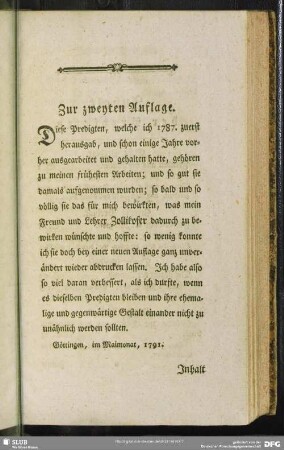 Zur zweyten Auflage.
Diese Predigten, welche ich 1787. zuerst
herausgab, und schon einige Jahre vor-
her ausgearbeitet und gehalten hatte, gehören
zu meinen frühesten Arbeiten; und so gut sie
damals aufgenommen wurden; so bald und so
völlig sie das für mich bewirkten, was mein
Freund und Lehrer Zollikofer dadurch zu be-
wirken wünschte und hoffte: so wenig konnte
ich sie doch bey einer neuen Auflage ganz unver-
ändert wieder abdrucken lassen. Ich habe also
so viel daran verbessert, als ich durfte, wenn
es dieselben Predigten bleiben und ihre ehema-
lige und gegenwärtige Gestalt einander nicht zu
unähnlich werden sollten.
Göttingen, im Maimonat, 1791.
Inhalt
SLUB
Wir führen Wissen.
DFG